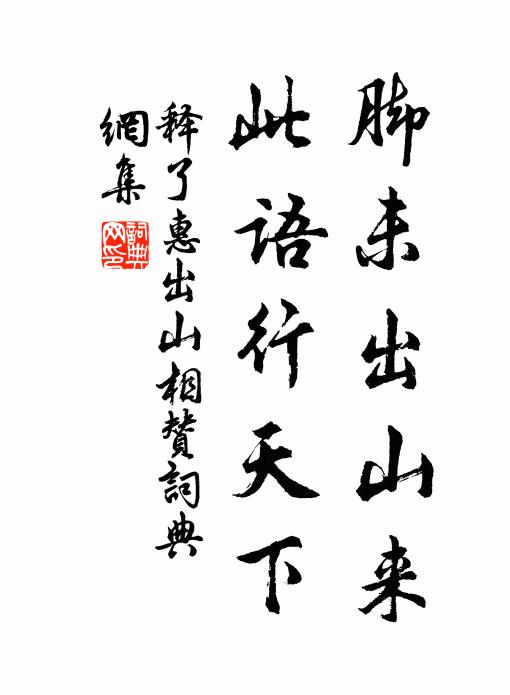 脚未出山来
此语行天下
释了惠出山相赞詞典
網集
詞典
网印